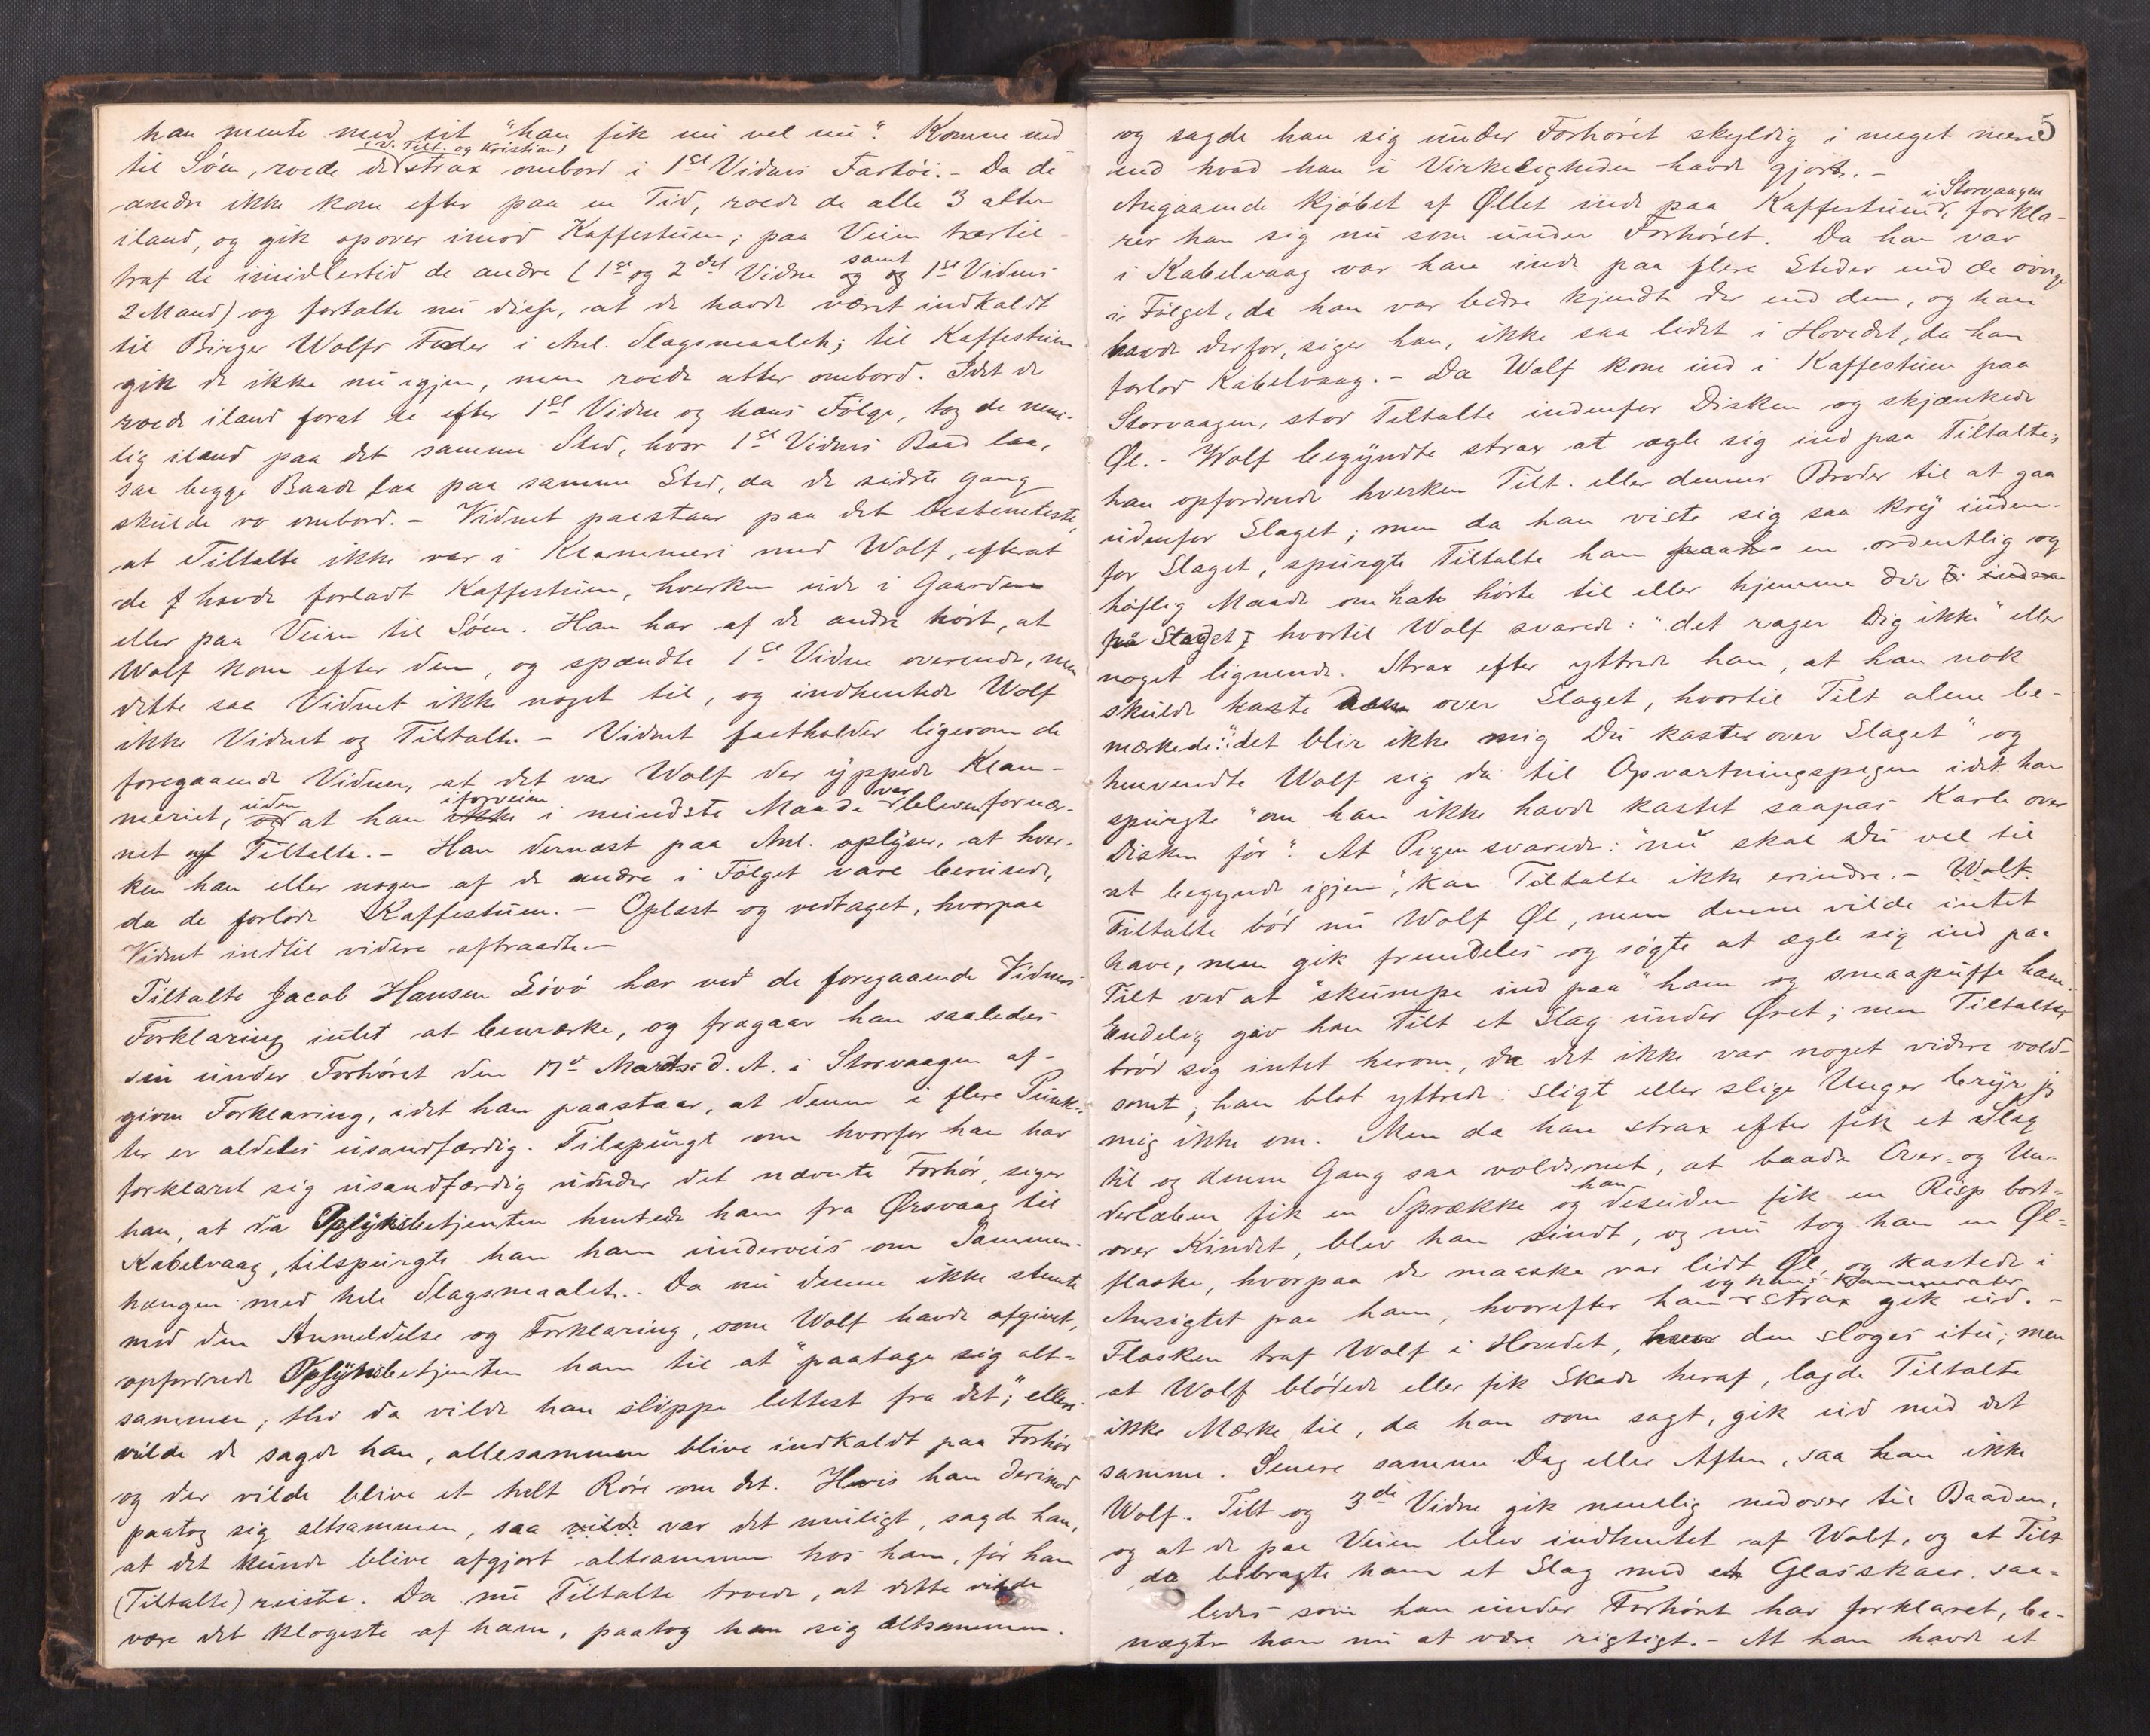 han mente med sit "han fik nu vel nu". Komne ned
til Söen, roede de (V. Tilt. og Kristian) strax ombord i 1ste Vidnes Fartöi. - Da de
andre ikke kom efter paa en Tid, roede de alle 3 atter
iland, og gik opover imod Kaffestuen; paa Veien hertil
traf de imidlertid de andre (1ste og 2det Vidne samt 1ste Vidnes
2 Mand) og fortalte nu disse, at de havde været indkaldt
til Birger Wolfs Fader i Anl. Slagsmaalet; til Kaffestuen
gik de ikke nu igjen, men roede atter ombord. Idet de
roede iland forat se efter 1ste Vidne og hans Fölge, tog de nem-
lig iland paa det samme Sted, hvor 1ste Vidnes Baad laa,
saa begge Baade laa paa samme Sted, da de sidste Gang
skulde ro ombord. - Vidnet paastaar paa det bestemteste,
at Tiltalte ikke var i Klammeri med Wolf, efterat
de havde forladt Kaffestuen, hverken ude i Gaarden
eller paa Veien til Söen. Han har af de andre hört, at
Wolf kom efter dem, og spændte 1ste Vidne overende, men
dette saa Vidnet ikke noget til, og indhentede Wolf
ikke Vidnet og Tiltalte. - Vidnet fastholder ligesom de
foregaaende Vidner, at det var Wolf der yppede Klam-
meriet, uden at han iforveien i mindste Maade var bleven fornær-
met af Tiltalte. - Han dernæst paa Anl. oplyser, at hver-
ken han eller nogen af de andre i Fölget vare berusede,
da de forlode Kaffestuen. - Oplæst og vedtaget, hvorpaa
Vidnet indtil videre aftraadte. -
Tiltalte Jacob Hansen Lövö har ved de foregaaende Vidners
Forklaring intet at bemærke, og fragaar han saaledes
sin under Forhöret den 17de Marts d. A. i Storvaagen af-
given Forklaring, idet han paastaar, at denne i flere Punk-
ter er aldeles usandfærdig. Tilspurgt om hvorfor han har
forklaret sig usandfærdig under det nævnte Forhör, siger
han, at da Opsynsbetjenten hentede ham fra Örsvaag til
Kabelvaag, tilspurgte han ham underveis om Sammen-
hængen med hele Slagsmaalet. Da nu denne ikke stemte
med den Anmeldelse og Forklaring, som Wolf havde afgivet,
opfordrede Opsynsbetjenten ham til at "paatage sig alt-
sammen, thi da vilde han slippe lettest fra det"; ellers
vilde de sagde han, allesammen blive indkaldt paa Forhör
og der vilde blive et helt Röre om det. Hvis han derimod
paatog sig altsammen, saa var det muligt, sagde han,
at det kunde blive afgjort altsammen hos ham, för han
(Tiltalte) reiste. Da nu Tiltalte troede, at dette vilde
være det klogeste af ham, paatog han sig altsammen.
5
og sagde han sig under Forhöret skyldig i meget mere
end hvad han i Virkeligheden havde gjort. -
Angaaende Kjöbet af Øllet inde paa Kaffestuen i Storvaagen, forkla-
rer han sig nu som under Forhöret. Da han var
i Kabelvaag var han inde paa flere Steder end de övrige
i Fölget, da han var bedre kjendt der end dem, og han
havde derfor, siger han, ikke saa lidet i Hovedet, da han
forlod Kabelvaag. - Da Wolf kom ind i Kaffestuen paa
Storvaagen, stod Tiltalte indenfor Disken og skjænkede
Øl. - Wolf begyndte strax at ægle sig ind paa Tiltalte;
han opfordrede hverken Tilt. eller dennes Broder til at gaa
udenfor Slaget; men da han viste sig saa kry inden-
for Slaget, spurgte Tiltalte ham paa en ordentlig og
höflig Maade om han hörte til eller hjemme der
på Stedet, hvortil Wolf svarede: "det rager Dig ikke" eller
noget lignende. Strax efter yttrede han, at han nok
skulde kaste ham over Slaget, hvortil Tilt alene be-
mærkede: "det blir ikke mig Du kaster over Slaget" og
henvendte Wolf sig da til Opvartningspigen idet han
spurgte "om han ikke havde kastet saapas Karle over
Disken för". At Pigen svarede: "nu skal Du vel til
at begynde igjen", kan Tiltalte ikke erindre. - Wolf.
Tiltalte böd nu Wolf Øl, men denne vilde intet
have, men gik fremdeles og sögte at ægle sig ind paa
Tilt ved at "skumpe ind paa" ham og smaapuffe ham.
Endelig gav han Tilt et Slag under Øret; men Tiltalte
bröd sig intet herom, da det ikke var noget videre vold-
somt; han blot yttrede: sligt eller slige Unger bryr jeg
mig ikke om. Men da han strax efter fik et Slag
til og denne Gang saa voldsomt, at baade Over- og Un-
derlæben fik en Sprække og han desuden fik en Risp bort-
over Kindet, blev han sindt, og nu tog han en Øl-
flaske, hvorpaa der maaske var lidt Øl, og kastede i
Ansigtet paa ham, hvorefter han og hans Kammerater strax gik ud. -
Flasken traf Wolf i Hovedet, hvor den sloges itu; men
at Wolf blödede eller fik Skade heraf, lagde Tiltalte
ikke Mærke til, da han som sagt, gik ud med det
samme. Senere samme Dag eller Aften, saa han ikke
Wolf. Tilt og 3die Vidne gik nemlig nedover til Baaden,
og at de paa Veien blev indhentet af Wolf, og at Tilt
da bibragte ham et Slag med et Glasskaar, saa-
ledes som han under Forhöret har forklaret, be-
nægter han nu at være rigtigt. - At han havde et